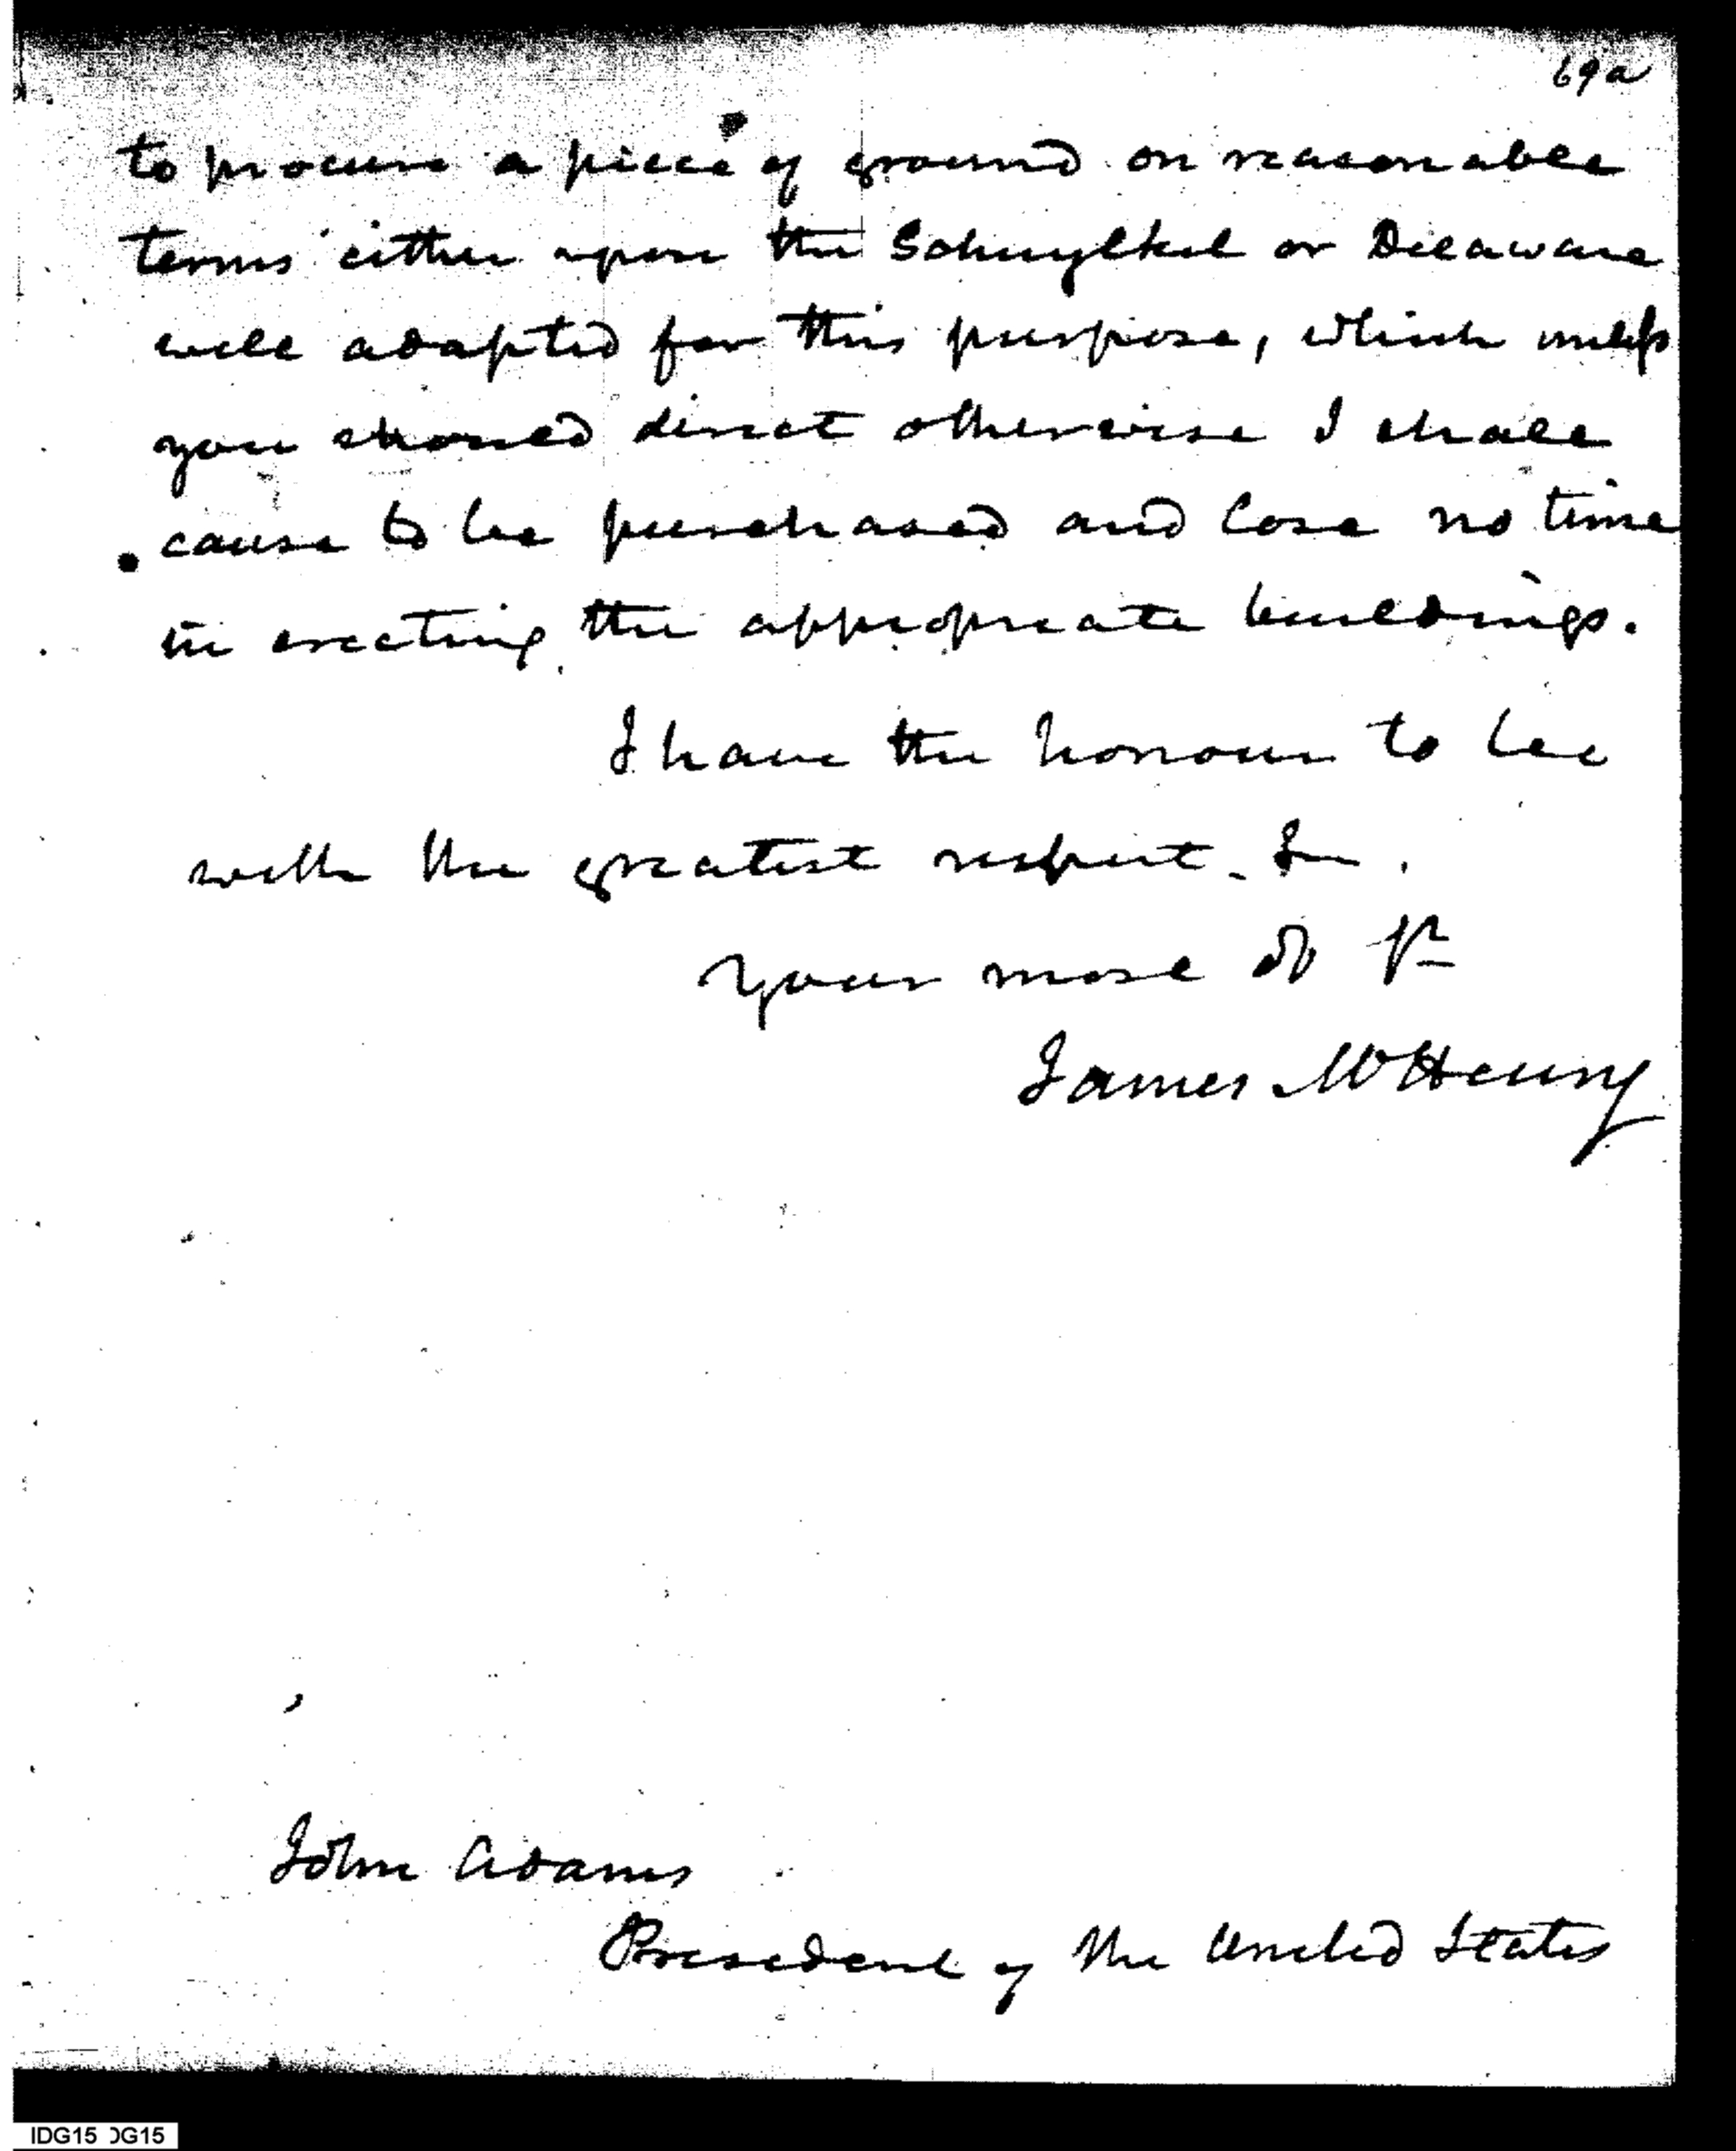 69a
to procure a piece of ground on reasonable
terms either upon the Schuylkil or Delaware
well adapted for this purpose, which unless
you should direct otherwise I shall
cause to be purchased and lose no time
in erecting the appropriate buildings.
I have the honour to be
with the greatest respect. Sir.
Your most ob St
James McHenry
John Adams
President of the United States
IDG15 DG15